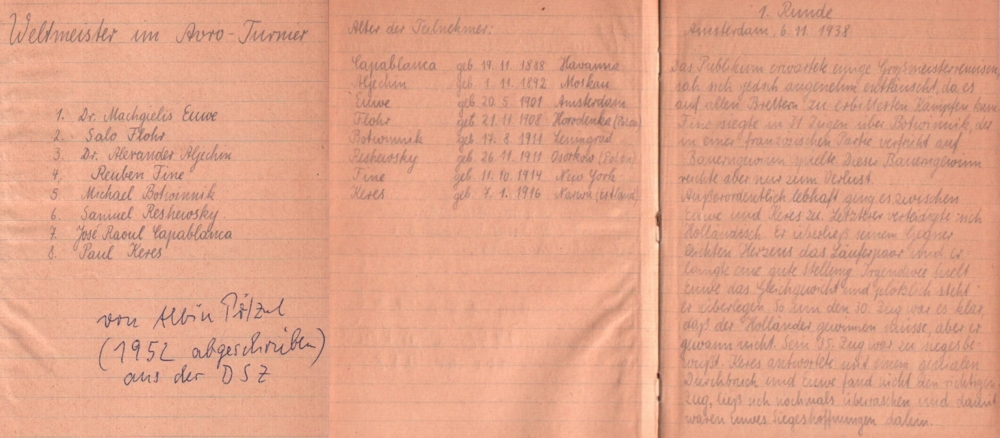 Weltmeister im Avro-Turnier
1. Dr. Machgielis Euwe
2. Salo Flohr
3. Dr. Alexander Aljechin
4. Reuben Fine
5 Michael Botwinnik
6. Samuel Reshewsky
7. José Raoul Capablanca
8. Paul Keres
von Albin Pötzel
(1952 abgeschrieben)
aus der DSZ
Alter der Teilnehmer:
Capablanca geb. 19. 11. 1888 Havanna
Aljechin geb. 1. 11. 1892 Moskau
Euwe geb. 20. 5. 1901 Amsterdam
Flohr geb. 21. 11 1908 Horodenka (Polen)
Botwinnik geb. 17. 8 1911 Leningrad
Reshewsky geb. 26. 11. 1911 Osorkow (Polen)
Fine geb. 11. 10. 1914 New York
Keres geb. 7. 1. 1916 Narwa (Estland)
1. Runde
Amsterdam, 6. 11 1938
Das Publikum erwartete einige Grossmeisterremisen
sah sich jedoch angenehm enttäuscht, da es
auf allen Brettern zu erbitterten Kämpfen kam
Fine siegte in 31 Zügen über Botwinnik, der
in einer französischen Partie verfrüht auf
Bauerngewinn spielte. Dieser Bauerngewinn
reichte aber nur zum Verlust.
Außerordentlich lebhaft ging es zwischen
Euwe und Keres zu. Letzterer verteidigte sich
Holländisch er überließ seinem Gegner
leichten Herzens das Läuferpaar und er
langte eine gute Stellung. Irgendwie hielt
Euwe das Gleichgewicht und plötzlich steht
er überlegen. So um den 30. Zug war es klar,
daß der Holländer gewinnen müsse, aber er
gewann nicht. Sein 35. Zug war zu siegesbe-
wußt. Keres antwortete mit einem genialen
Durchbruch und Euwe fand nicht den richtigen
Zug, ließ sich nochmals überraschen und damit
waren Euwes Siegeshoffnungen dahin.